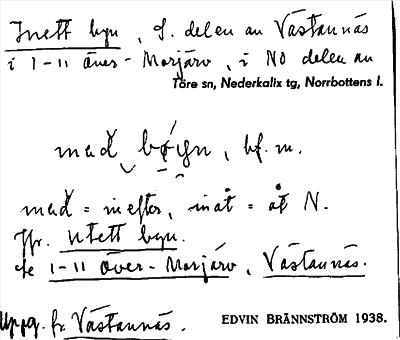 Inett byn, S. delen av Västannäs
i 1-11 Över-Morjärv, i NO delen av
Töre sn, Nederkalix tg, Norrbottens l.
bf. m.
= inefter, inåt = åt N.
Jfr. Utett byn.
se 1-11 Över-Morjärv, Västannäs.
Uppg. fr. Västannäs.
EDVIN BRÄNNSTRÖM 1938.